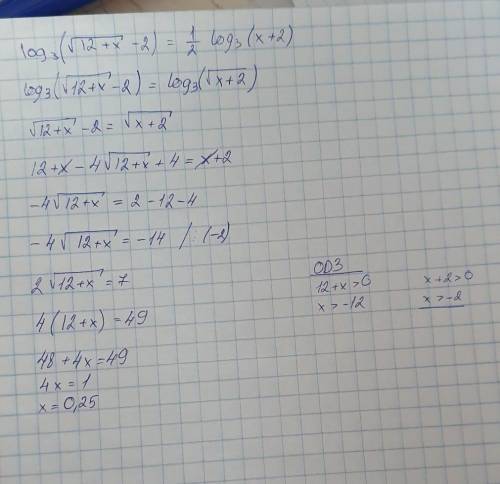 log₃(√(12+x) -2) = 1/2 log₃(x+2)
log₃(√(12+x) -2) = log₃(√(x+2))
√(12+x) -2 = √(x+2)
12+x -4√(12+x) +4 = x+2
-4√(12+x) = 2 -12 -4
-4√(12+x) = -14 /:(-2)
2√(12+x) = 7
4(12+x) = 49
48+4x=49
4x = 1
x = 0,25
ОДЗ
12+x>0
x>-12
x+2>0
x>-2